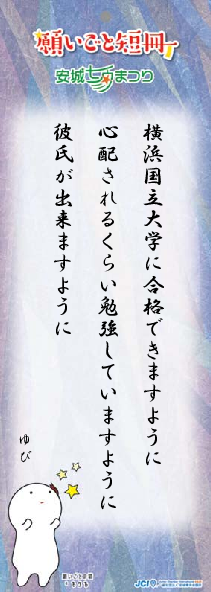 願いごと短冊
安城七夕まつり
横浜国立大学に合格できますように
心配されるくらい勉強していますように
彼氏が出来ますように
ゆび
JCI